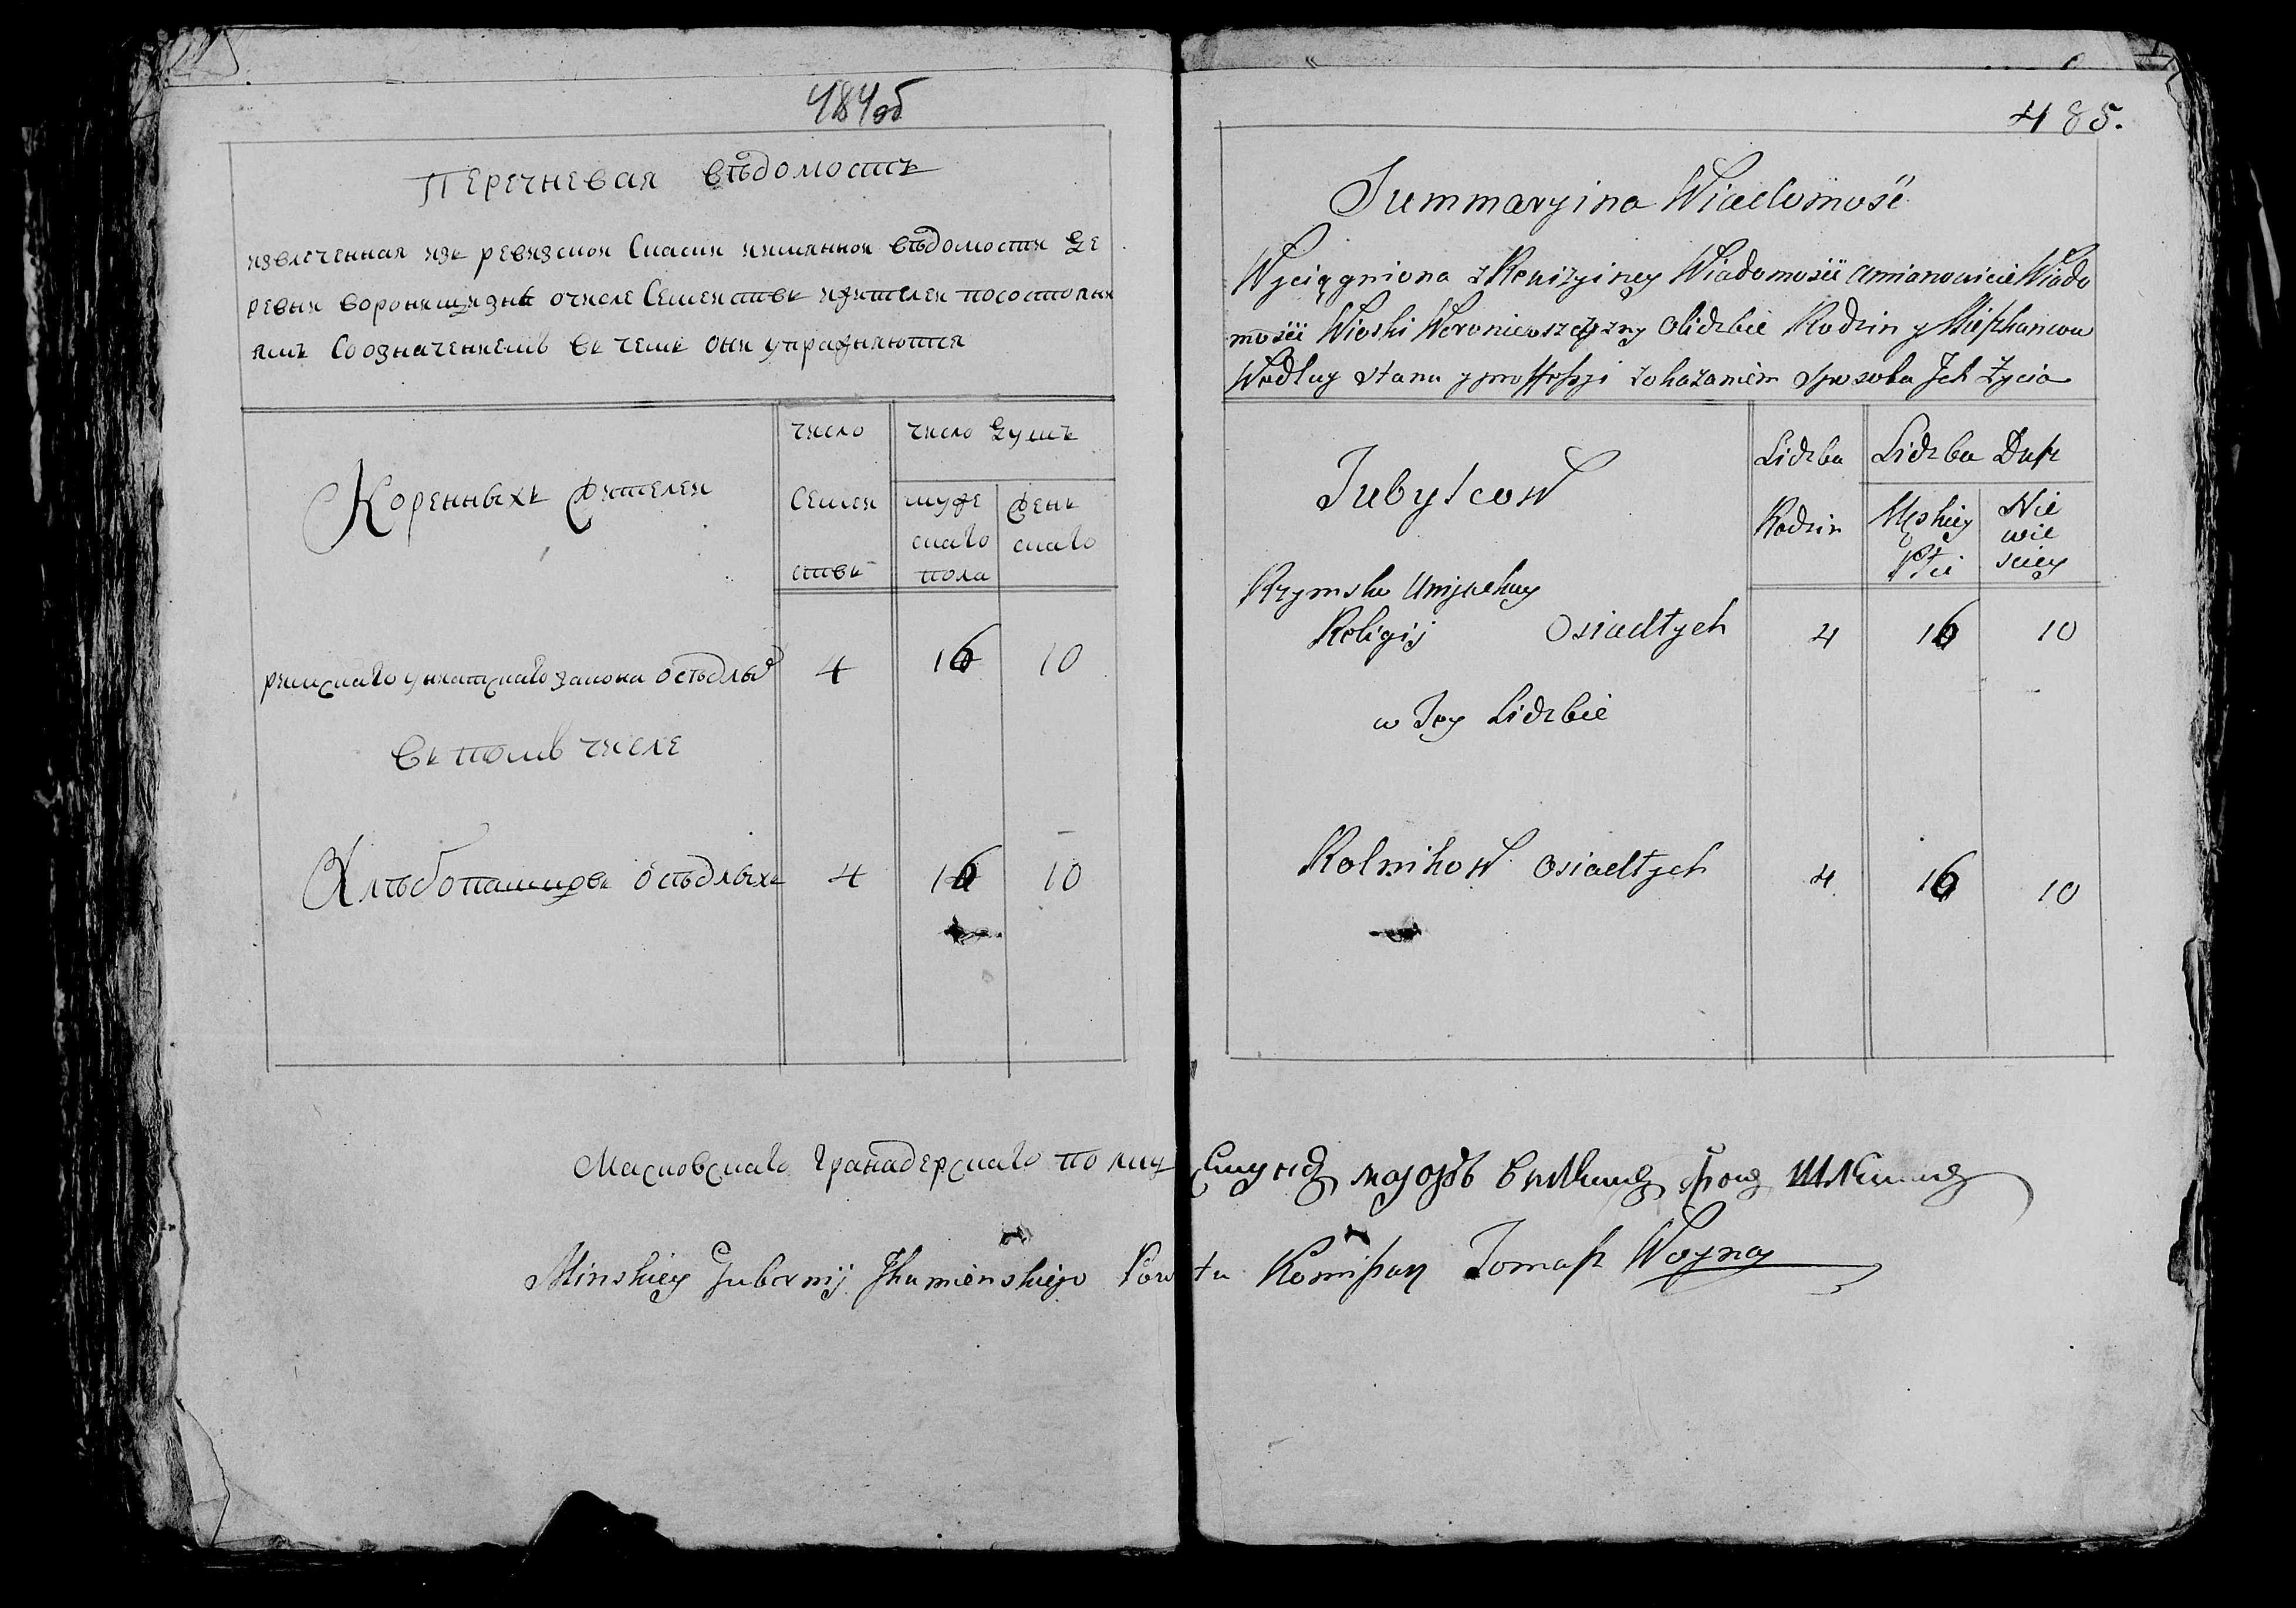 484об
Перечневая вѣдомость
извлеченная изъ ревизской Сказки имянной вѣдомости де
ревни воронищизны очисле Семействъ ижителей посостояни
ямъ Соозначениемъ въ чемъ они упражняются
Коренныхъ жителей
число
Семей
ствъ
число душъ
муже
скаго
пола
жень
скаго
римскаго униатскаго закона осѣдлых 4 16 10
въ томъ числе
Хлѣбопашцовъ осѣдлыхъ 4 16 10
485.
Summaryina Wiadomość
Wyciągniona z Rewizyiney Wiadomości amianowicie Wiado
mości Wioski Woroniewszczyzny olidzbie Rodzin y Mieszkancow
Wedlug stanu y proffessyi zokazaniem sposobu Jch Życia
Tubylcow
Lidzba
Rodzin
Lidzba Dusz
Męskiey
Płci
Nie
wie
sciey
Rzymsko Uniackiey
Religij Osiadłych 4 16 10
w Tey Lidzbie
Rolnikow Osiadłych 4 16 10
Масковскаго гранадерскаго полку Секундъ маіоръ фонъ
Minskiey Gubernij Jhumienskiego Powiatu Komissarz Tomasz Woyna